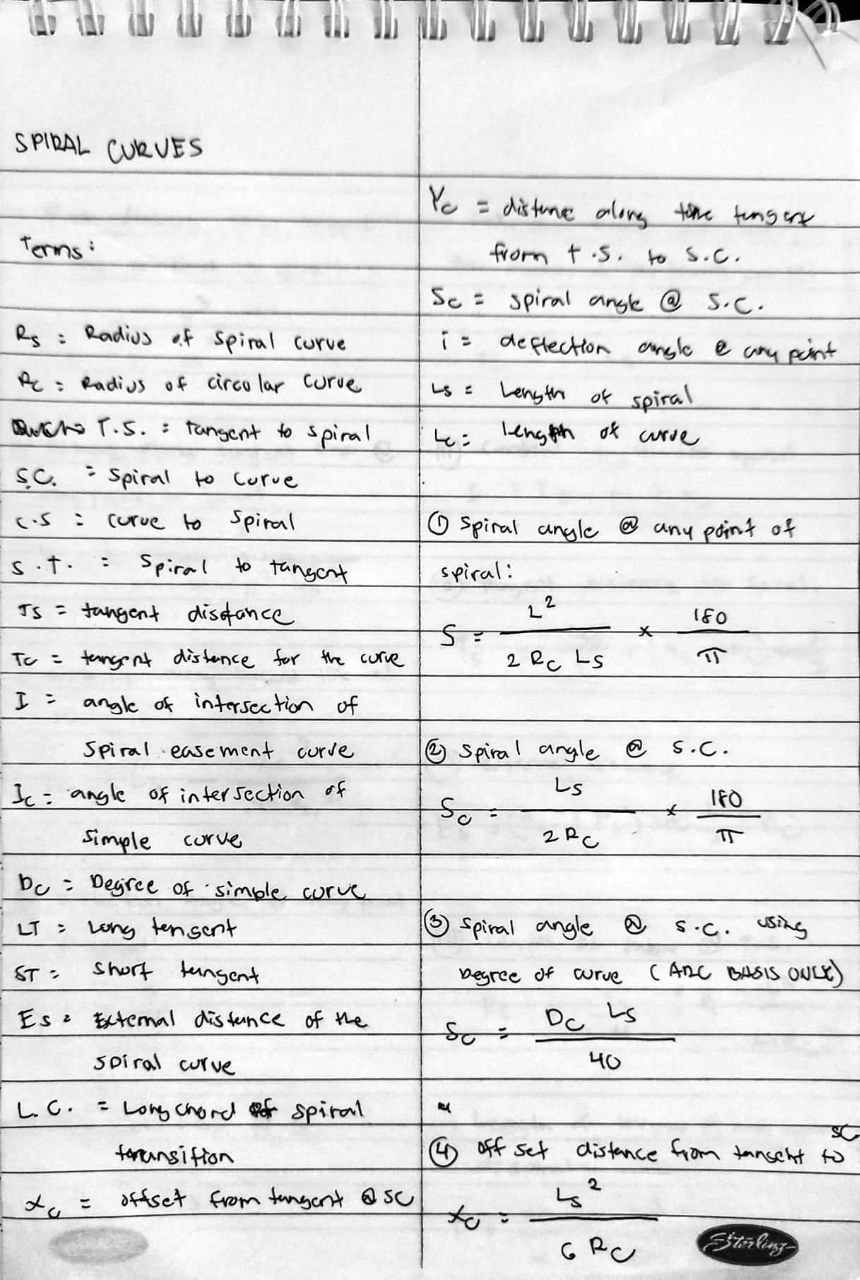 SPIRAL CURVES
Terms:
Rs = Radius of spiral curve
Rc = Radius of circular curve
T.S. = tangent to spiral
S.C. = Spiral to curve
C.S = curve to spiral
S.T. = Spiral to tangent
Ts = tangent distance
Tc = tangent distance for the curve
I = angle of intersection of
spiral easement curve
Ic = angle of intersection of
simple curve
Dc = Degree of simple curve
LT = Long tangent
ST = Short tangent
Es = External distance of the
spiral curve
L.C. = Long chord of spiral
transition
xc = offset from tangent @ SC
Yc = distance along the tangent
from T.S. to S.C.
Sc = spiral angle @ S.C.
i = deflection angle @ any point
Ls = Length of spiral
Lc = Length of curve
① Spiral angle @ any point of
spiral:
S = L² / 2 Rc Ls × 180 / π
② spiral angle @ S.C.
Sc = Ls / 2 Rc × 180 / π
③ spiral angle @ S.C. using
Degree of curve (ARC BASIS ONLY)
Sc = Dc Ls / 40
④ off set distance from tangent to SC
xc = Ls² / 6 Rc
Sterling